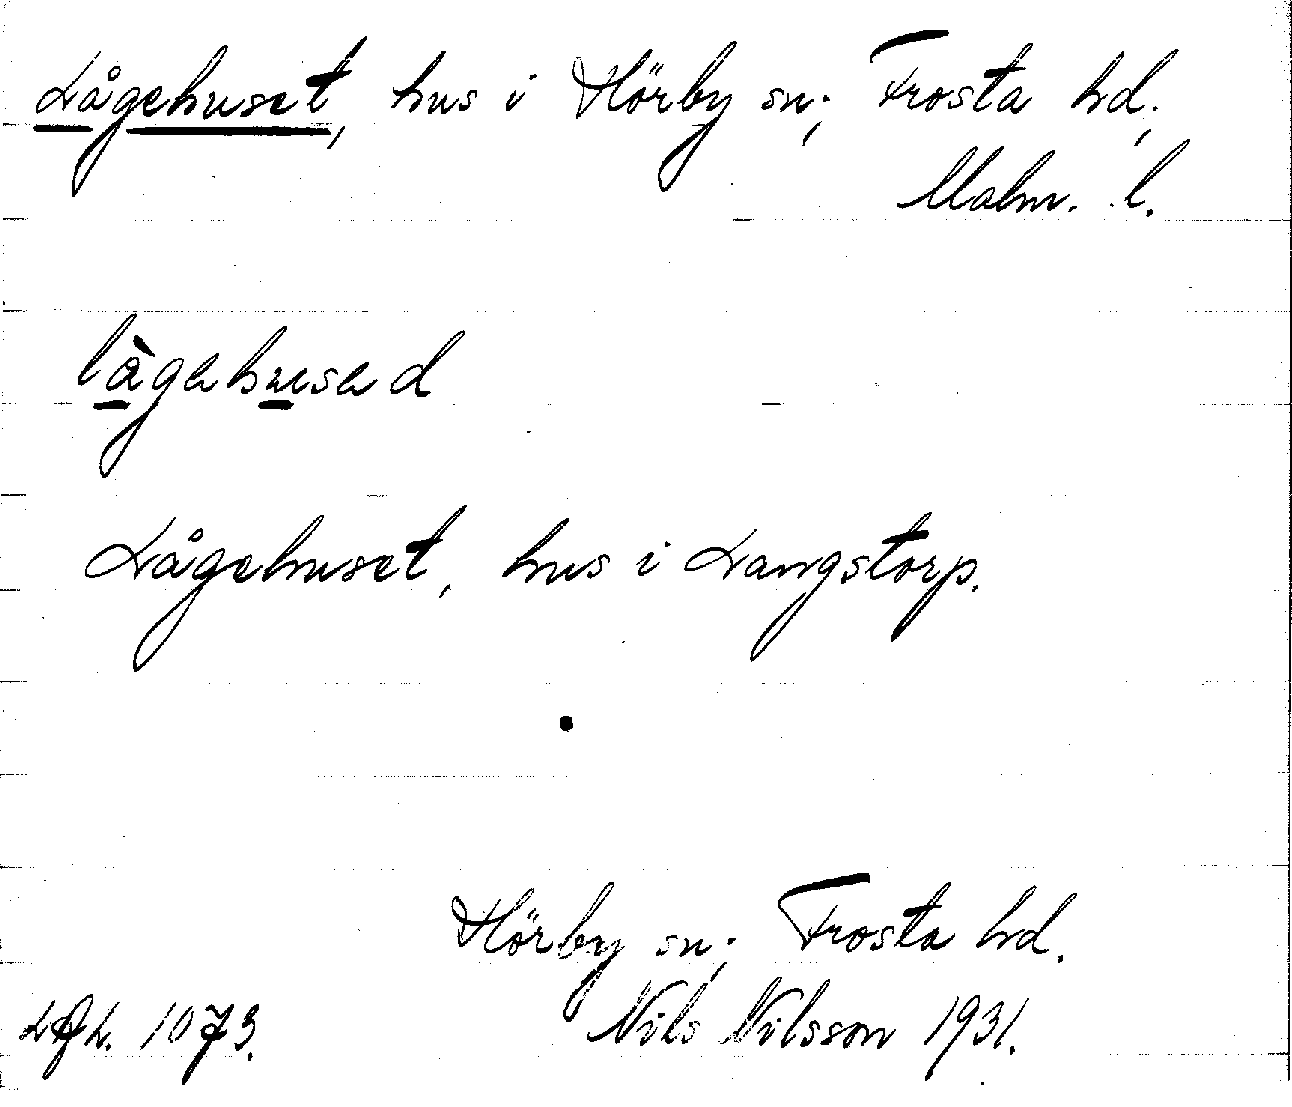 Lågehuset, hus i Hörby sn; Frosta hd,
Malm. l.
làgehused
Lågehuset, hus i Langstorp.
Hörby sn; Frosta hd.
1073. Nils Nilsson 1931.